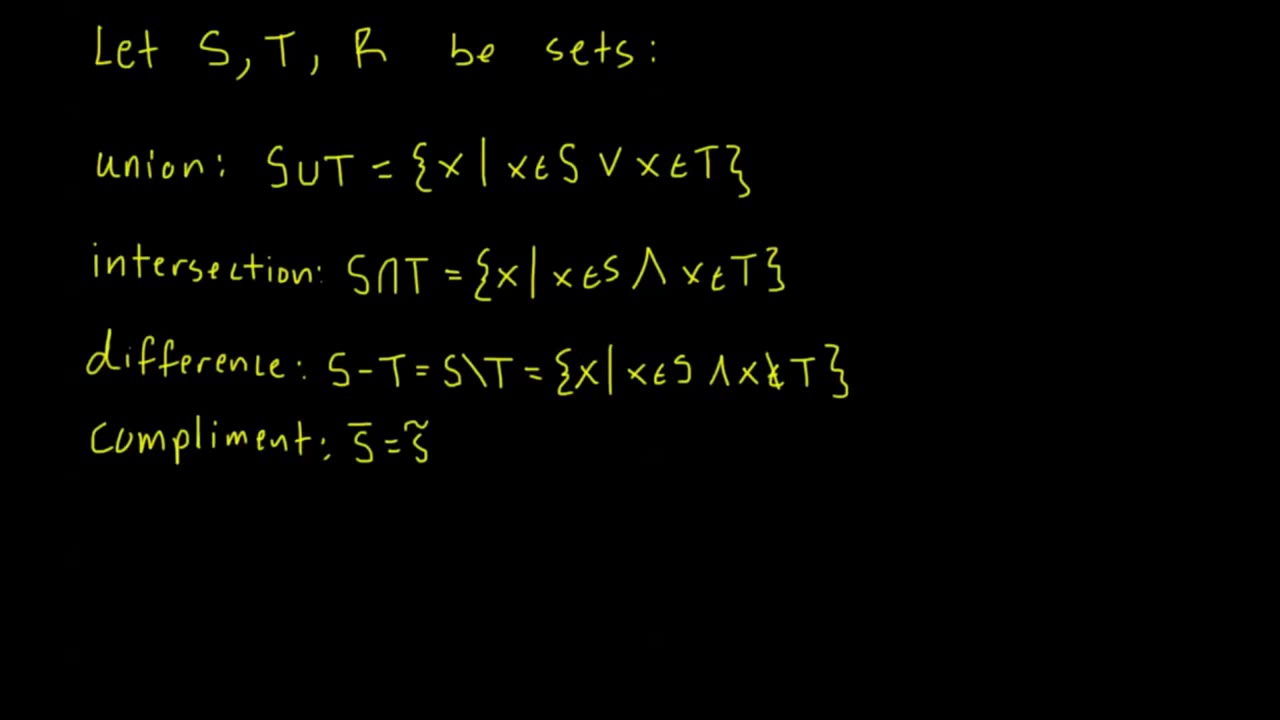 Let S, T, R be sets:
union: S∪T = {x | x∈S ∨ x∈T}
intersection: S∩T = {x | x∈S ∧ x∈T}
difference: S-T = S\T = {x | x∈S ∧ x∉T}
compliment: S̅ = S̃